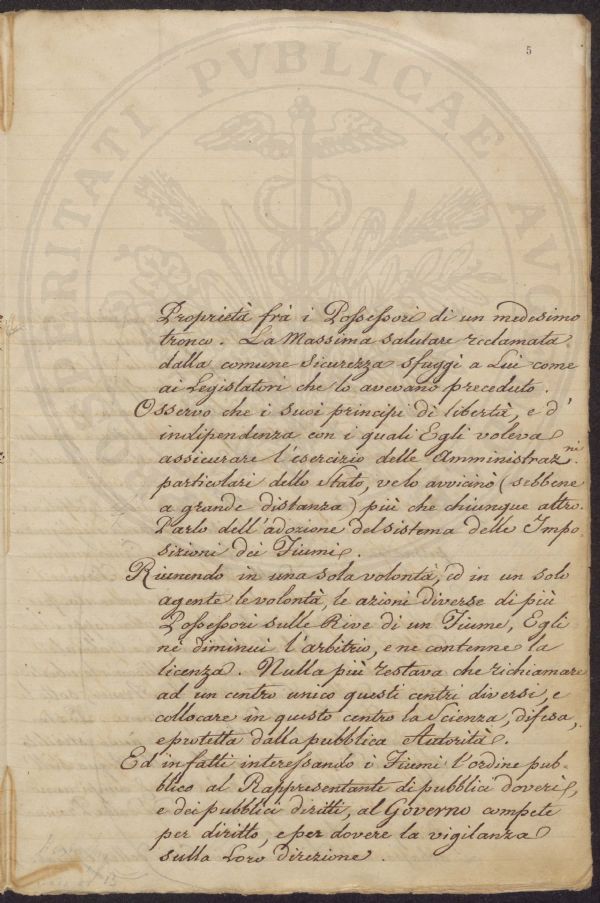 5
PROSPERITATI PVBLICAE AVG
Proprietà frà i Possessori di un medesimo
tronco. La Massima salutare reclamata
dalla comune sicurezza sfuggì a Lui come
ai Legislatori che lo avevano preceduto.
Osservo che i suoi principj di libertà, e d'
indipendenza con i quali Egli voleva
assicurare l'esercizio delle Amministrazni.
particolari dello Stato, velo avvicinò (sebbene
a grande distanza) più che chiunque altro.
Parlo dell'adozione del sistema delle Impo-
sizioni dei Fiumi.
Riunendo in una sola volontà, ed in un solo
agente le volontà, le azioni diverse di più
Possessori sulle Rive di un Fiume, Egli
nè diminuì l'arbitrio, e ne contenne la
licenza. Nulla più restava che richiamare
ad un centro unico questi centri diversi, e
collocare in questo centro la Scienza, difesa,
e protetta dalla pubblica Autorità.
Ed in fatti interessando i Fiumi l'ordine pub-
blico al Rappresentante di pubblici doveri,
e dei pubblici diritti, al Governo compete
per diritto, e per dovere la vigilanza
sulla Loro direzione.